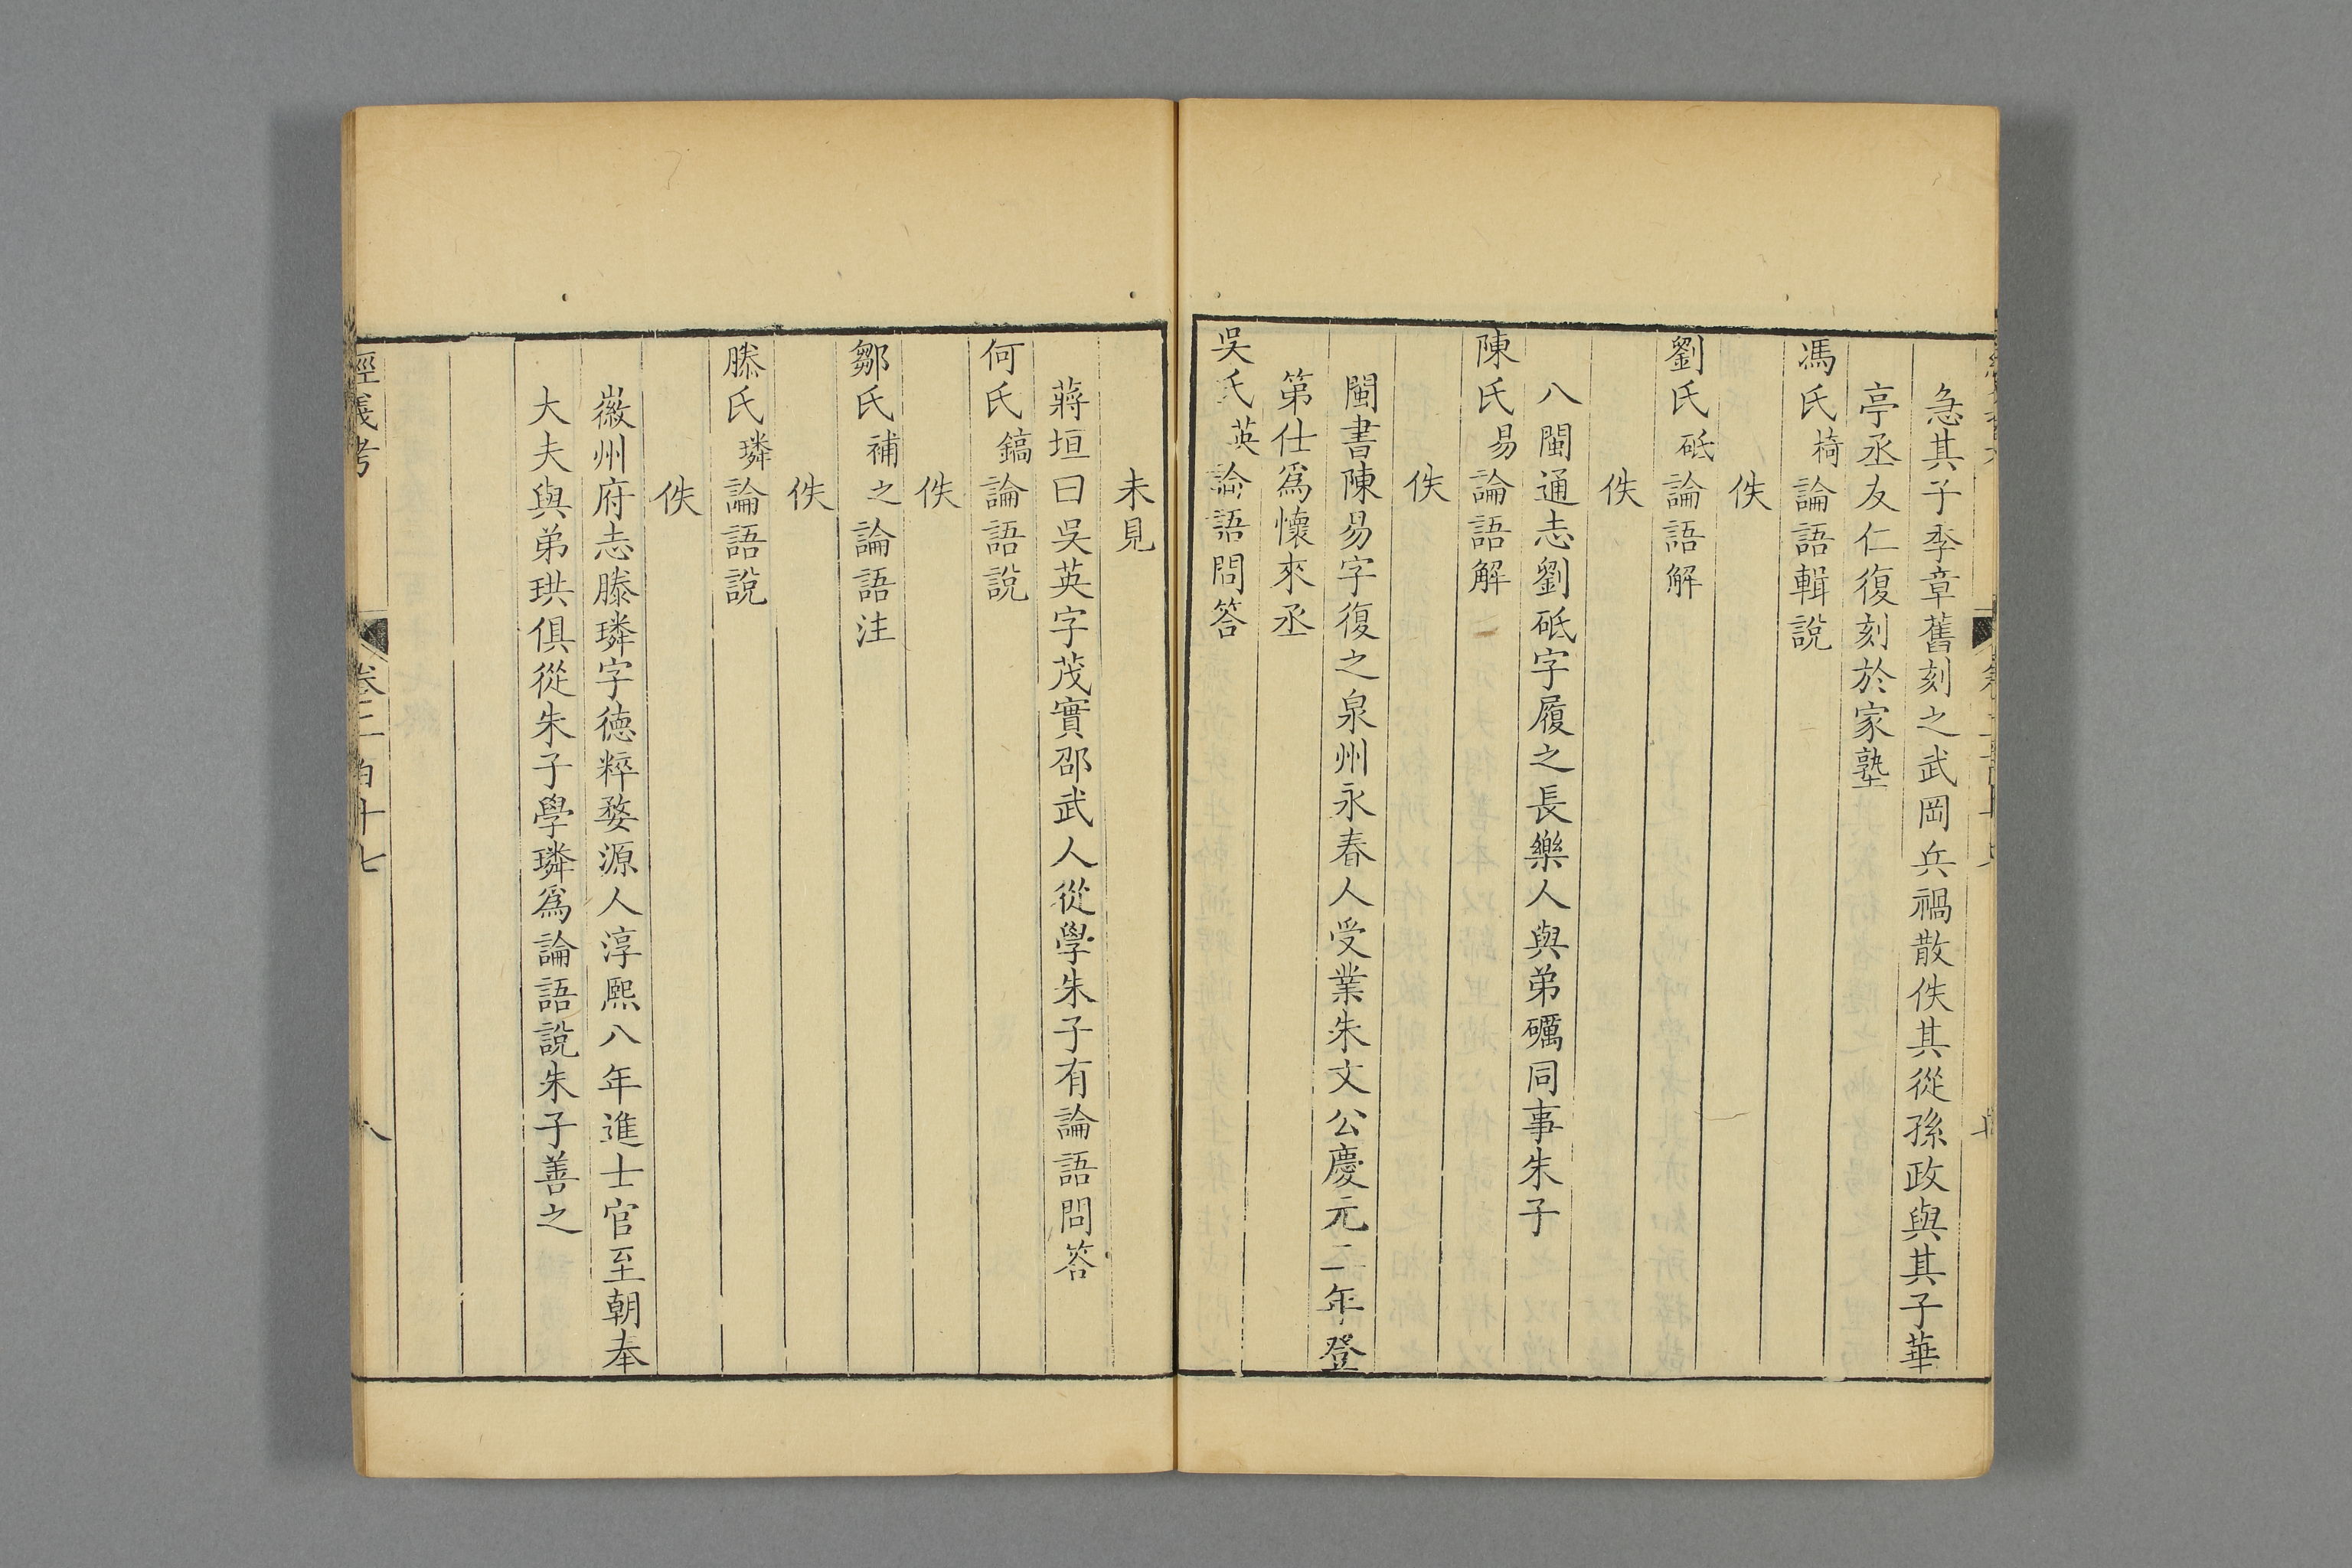 急其子季章舊刻之武岡兵禍散佚其從孫政與其子華
亭丞友仁復刻於家塾
馮氏椅論語輯說
佚
劉氏砥論語解
佚
八閩通志劉砥字履之長樂人與弟礪同事朱子
陳氏易論語解
佚
閩書陳易字復之泉州永春人受業朱文公慶元二年登
第仕爲懷來丞
吳氏英論語問答
未見
蔣垣曰吳英字茂實邵武人從學朱子有論語問答
何氏鎬論語說
佚
鄒氏補之論語注
佚
滕氏璘論語說
佚
徽州府志滕璘字德粹婺源人淳熙八年進士官至朝奉
大夫與弟珙俱從朱子學璘爲論語說朱子善之
經義考
卷二百十七
八